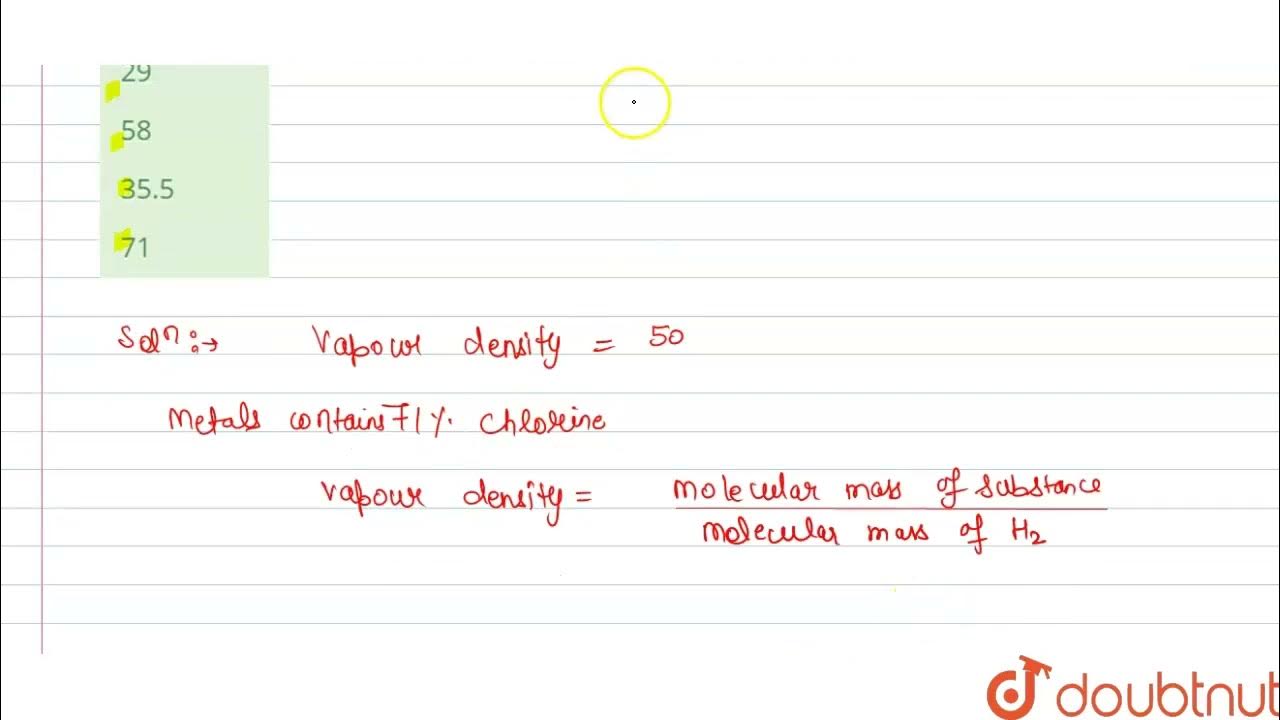 29
58
35.5
71
Solⁿ :→ Vapour density = 50
Metals contains 71%. Chlorine
Vapour density = molecular mass of substance
molecular mass of H₂
doubtnut